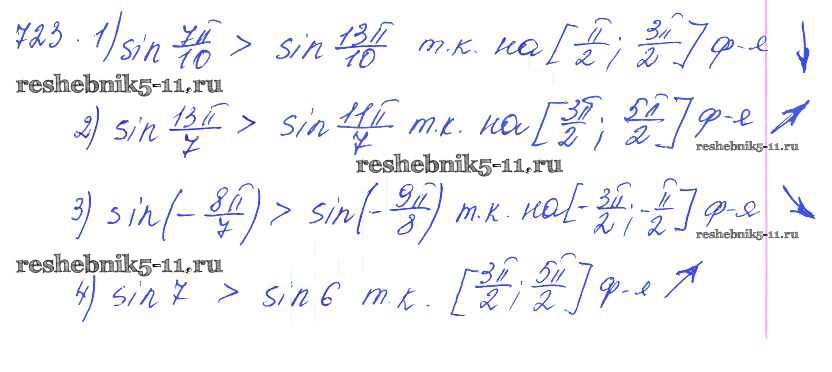 723. 1) sin 7π/10 > sin 13π/10 т.к. на [π/2; 3π/2] ф-я ↓
reshebnik5-11.ru
2) sin 13π/7 > sin 11π/7 т.к. на [3π/2; 5π/2] ф-я ↗
reshebnik5-11.ru
reshebnik5-11.ru
3) sin(-8π/7) > sin(-9π/8) т.к. на [-3π/2; -π/2] ф-я ↘
reshebnik5-11.ru
reshebnik5-11.ru
4) sin 7 > sin 6 т.к. [3π/2; 5π/2] ф-я ↗